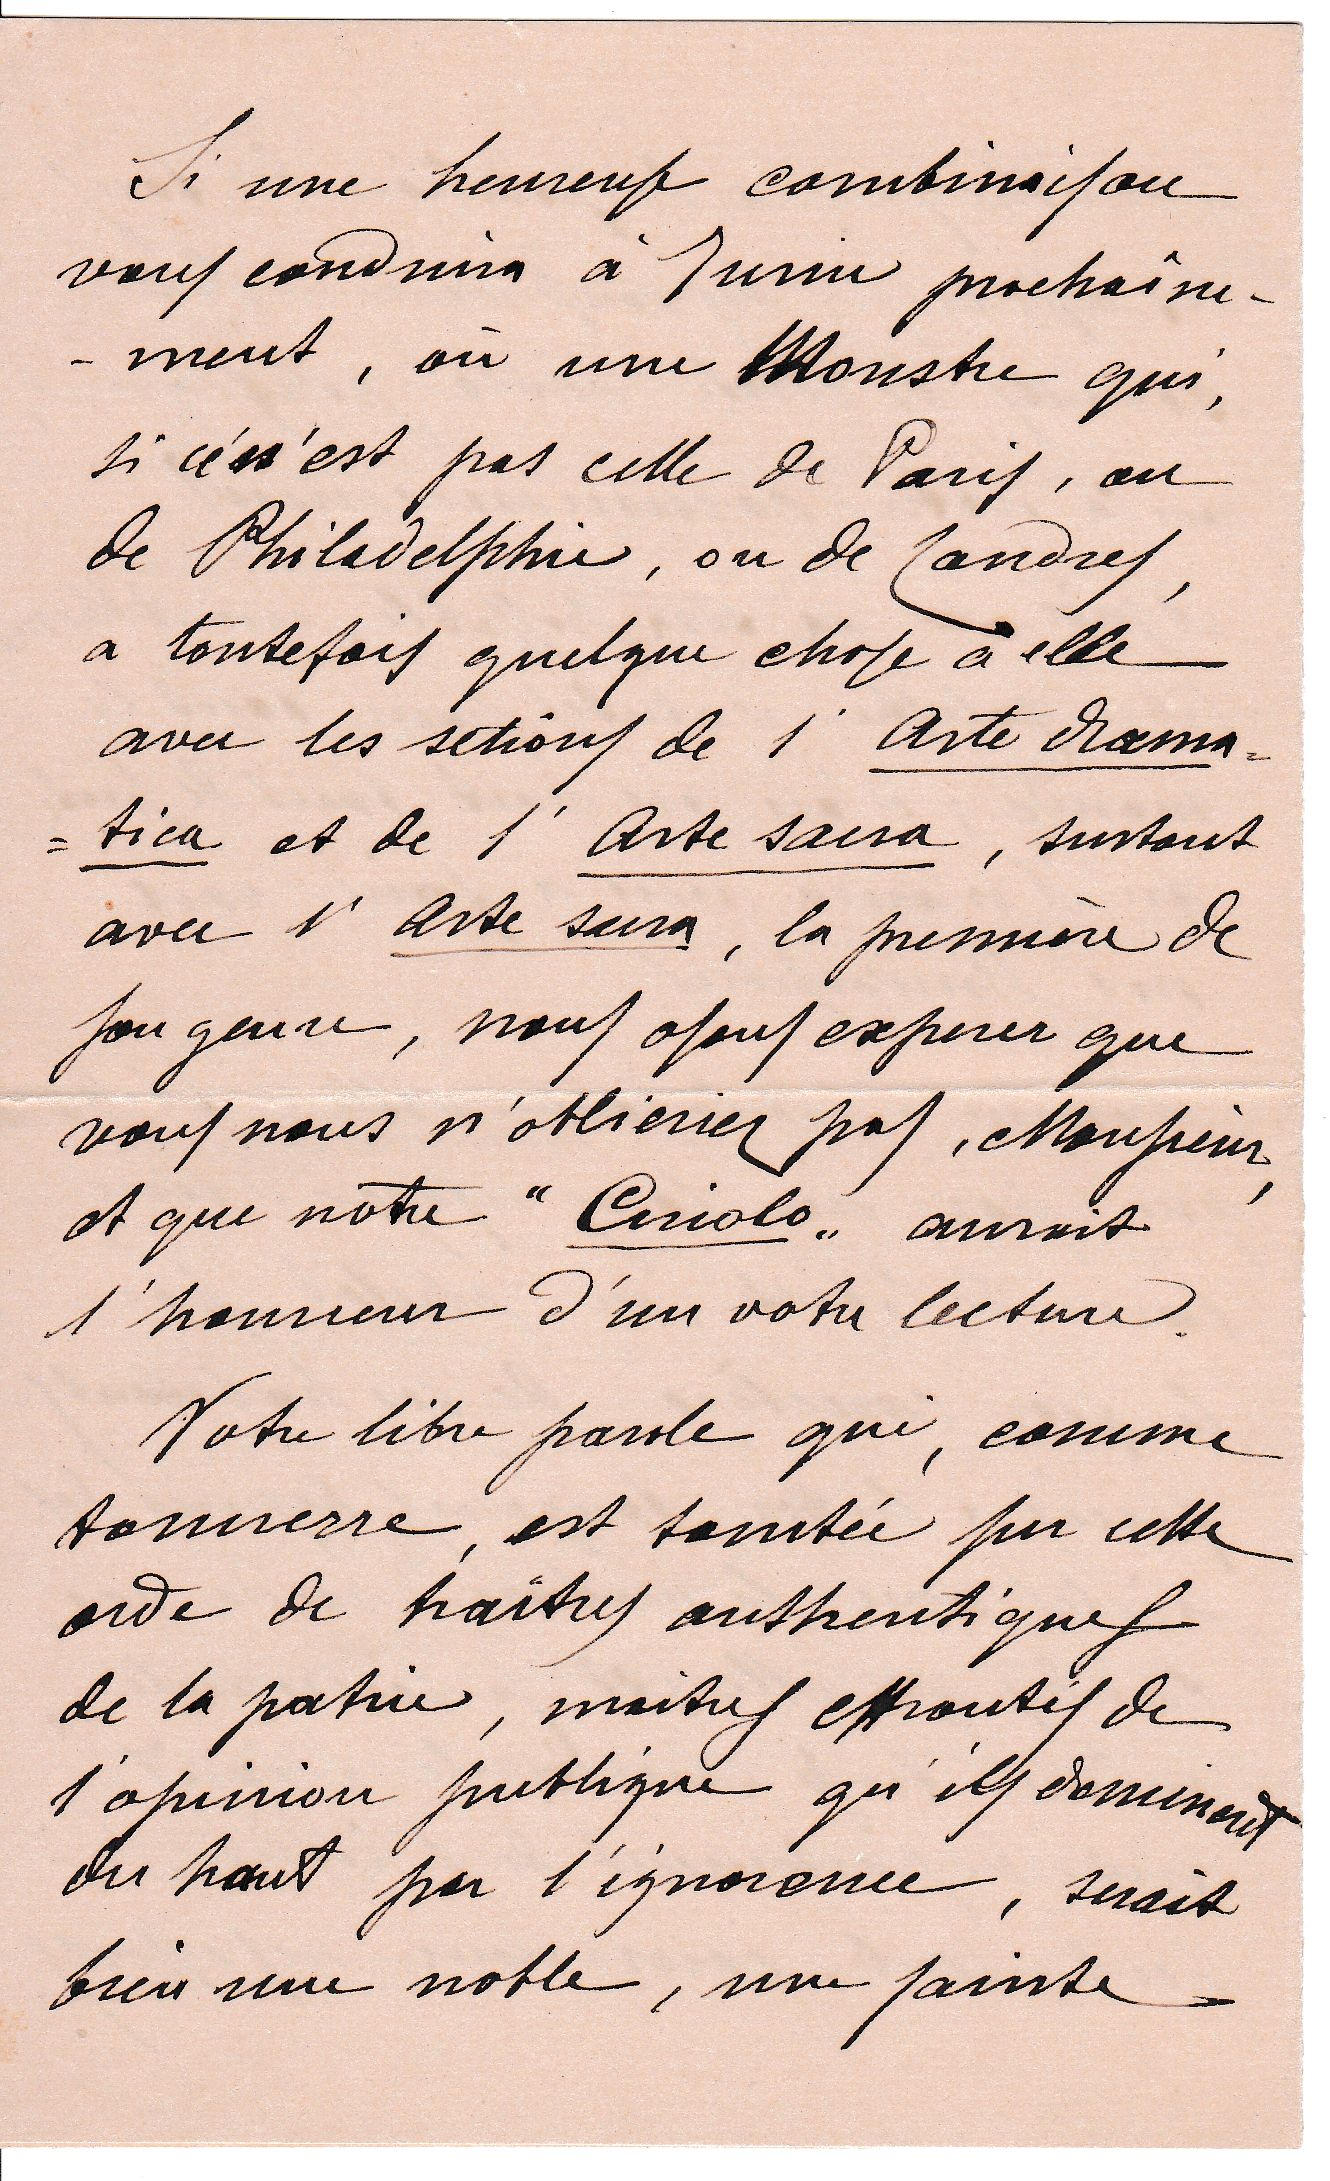 Si une heureuse combinaison
vous conduira à Turin prochaîne-
-ment, où une Monstre qui,
si ce n'est pas celle de Paris, ou
de Philadelphie, ou de Londres,
a toutefois quelque chose à elle
avec les setiôns de l'Arte drama=
=tica et de l'Arte sacra, surtout
avec l'Arte sacra, la première de
son genre, nous osons experer que
vous nous n'oblieriez pas, Monsieur,
et que nôtre "Circolo„ aurait
l'honneur d'un votre lecture.
Votre libre parole qui, comme
tonnerre, est tombée sur cette
orde de traîtres authentiques
de la patrie, maitres effrontés de
l'opinion publique qu'ils dominent
du haut par l'ignorence, serait
bien une noble, une sainte